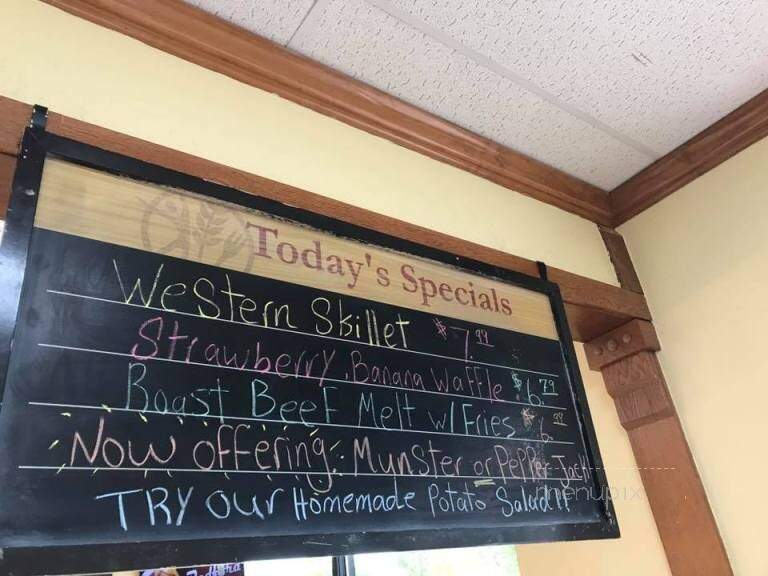 Today's Specials
Western Skillet $7.99
Strawberry, Banana Waffle $6.79
Roast Beef Melt w/ Fries $6.99
Now offering: Munster or Pepper Jack
TRY our Homemade Potato Salad!!
menupix